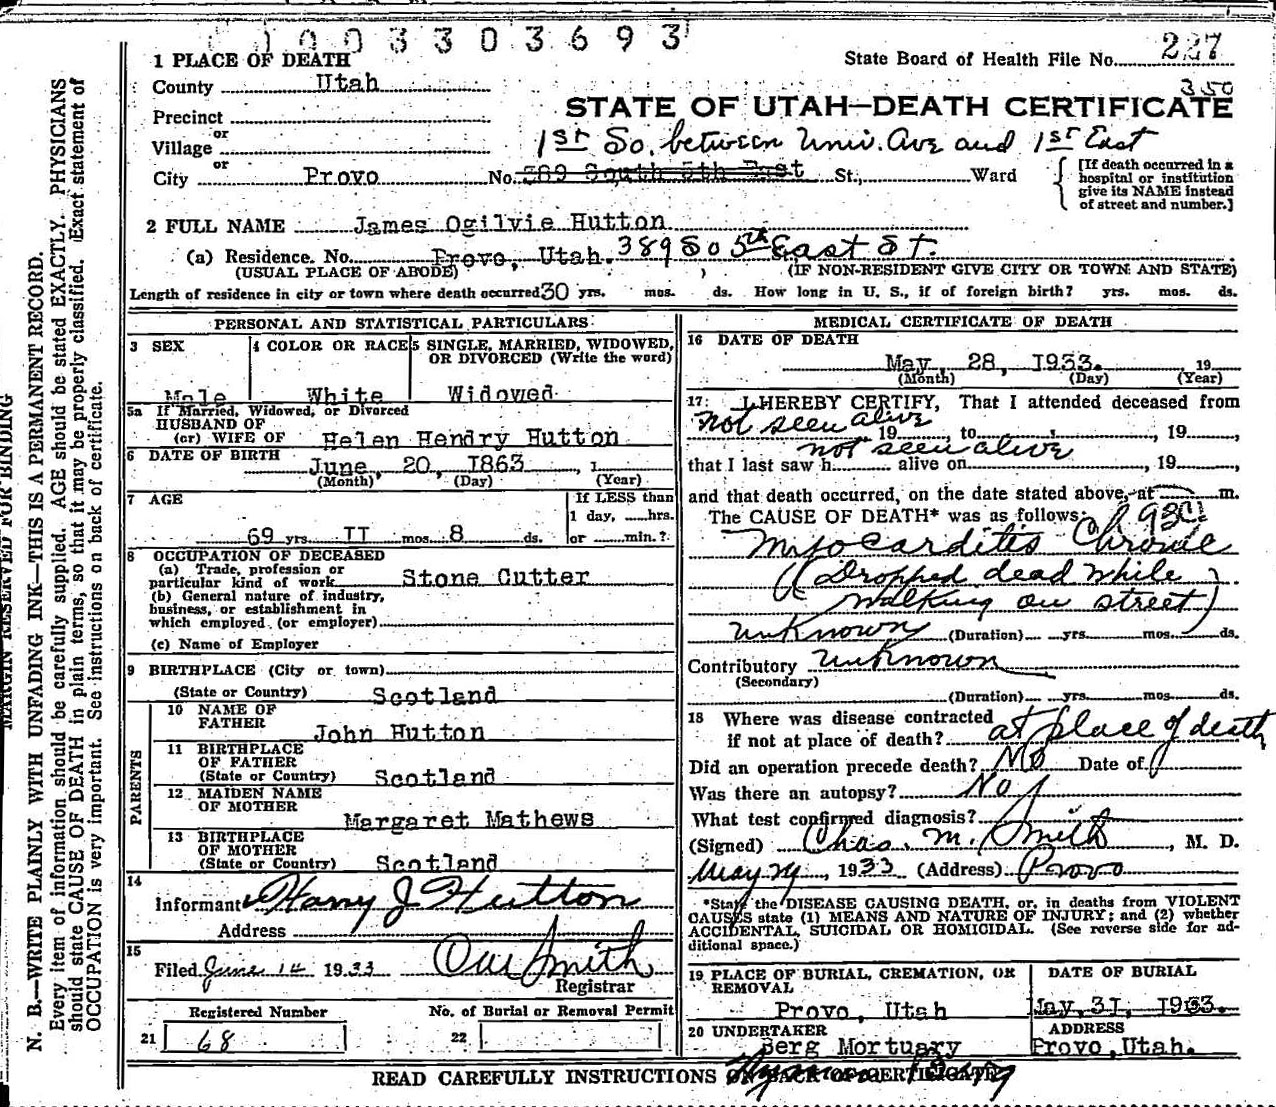 0 0 3 3 0 3 6 9 3
1 PLACE OF DEATH
State Board of Health File No. 227
350
County Utah
STATE OF UTAH—DEATH CERTIFICATE
Precinct
or
Village
1st So. between Univ. Ave and 1st East
or
City Provo No. 389 South 5th East St., Ward
[If death occurred in a hospital or institution give its NAME instead of street and number.]
2 FULL NAME James Ogilvie Hutton
(a) Residence. No. Provo, Utah. 389 So 5th East St.
(USUAL PLACE OF ABODE) (IF NON-RESIDENT GIVE CITY OR TOWN AND STATE)
Length of residence in city or town where death occurred 30 yrs. mos. ds. How long in U. S., if of foreign birth? yrs. mos. ds.
PERSONAL AND STATISTICAL PARTICULARS
3 SEX
Male
4 COLOR OR RACE
White
5 SINGLE, MARRIED, WIDOWED, OR DIVORCED (Write the word)
Widowed
5a If Married, Widowed, or Divorced
HUSBAND OF
(or) WIFE OF Helen Hendry Hutton
6 DATE OF BIRTH
June, 20, 1863, 1
(Month) (Day) (Year)
7 AGE
If LESS than
1 day, hrs.
or min.?
69 yrs II mos. 8 ds.
8 OCCUPATION OF DECEASED
(a) Trade, profession or
particular kind of work Stone Cutter
(b) General nature of industry,
business, or establishment in
which employed (or employer)
(c) Name of Employer
9 BIRTHPLACE (City or town)
(State or Country) Scotland
PARENTS
10 NAME OF
FATHER
John Hutton
11 BIRTHPLACE
OF FATHER
(State or Country) Scotland
12 MAIDEN NAME
OF MOTHER
Margaret Mathews
13 BIRTHPLACE
OF MOTHER
(State or Country) Scotland
14
Informant Harry J Hutton
Address
15
Filed June 14 1933
Smith
Registrar
Registered Number
21 68
No. of Burial or Removal Permit
22
MEDICAL CERTIFICATE OF DEATH
16 DATE OF DEATH
May, 28, I933. 19
(Month) (Day) (Year)
17 I HEREBY CERTIFY, That I attended deceased from
not seen alive 19 , to , 19 ,
not seen alive
that I last saw h alive on , 19 ,
and that death occurred, on the date stated above, at m.
The CAUSE OF DEATH* was as follows: 93C
Myocarditis Chronic
(Dropped dead while
walking on street)
unknown (Duration) yrs. mos. ds.
Contributory unknown
(Secondary)
(Duration) yrs. mos. ds.
18 Where was disease contracted
if not at place of death? at place of death
Did an operation precede death? No Date of
Was there an autopsy? No
What test confirmed diagnosis?
(Signed) Chas. M. Smith, M. D.
May 29, 1933 (Address) Provo
*State the DISEASE CAUSING DEATH, or, in deaths from VIOLENT
CAUSES state (1) MEANS AND NATURE OF INJURY; and (2) whether
ACCIDENTAL, SUICIDAL OR HOMICIDAL. (See reverse side for ad-
ditional space.)
19 PLACE OF BURIAL, CREMATION, OR
REMOVAL
Provo, Utah
DATE OF BURIAL
May, 31, 1933.
20 UNDERTAKER
Berg Mortuary
ADDRESS
Provo, Utah.
READ CAREFULLY INSTRUCTIONS ON BACK OF CERTIFICATE
MARGIN RESERVED FOR BINDING
N. B.—WRITE PLAINLY WITH UNFADING INK—THIS IS A PERMANENT RECORD.
Every item of information should be carefully supplied. AGE should be stated EXACTLY. PHYSICIANS
should state CAUSE OF DEATH in plain terms, so that it may be properly classified. Exact statement of
OCCUPATION is very important. See instructions on back of certificate.